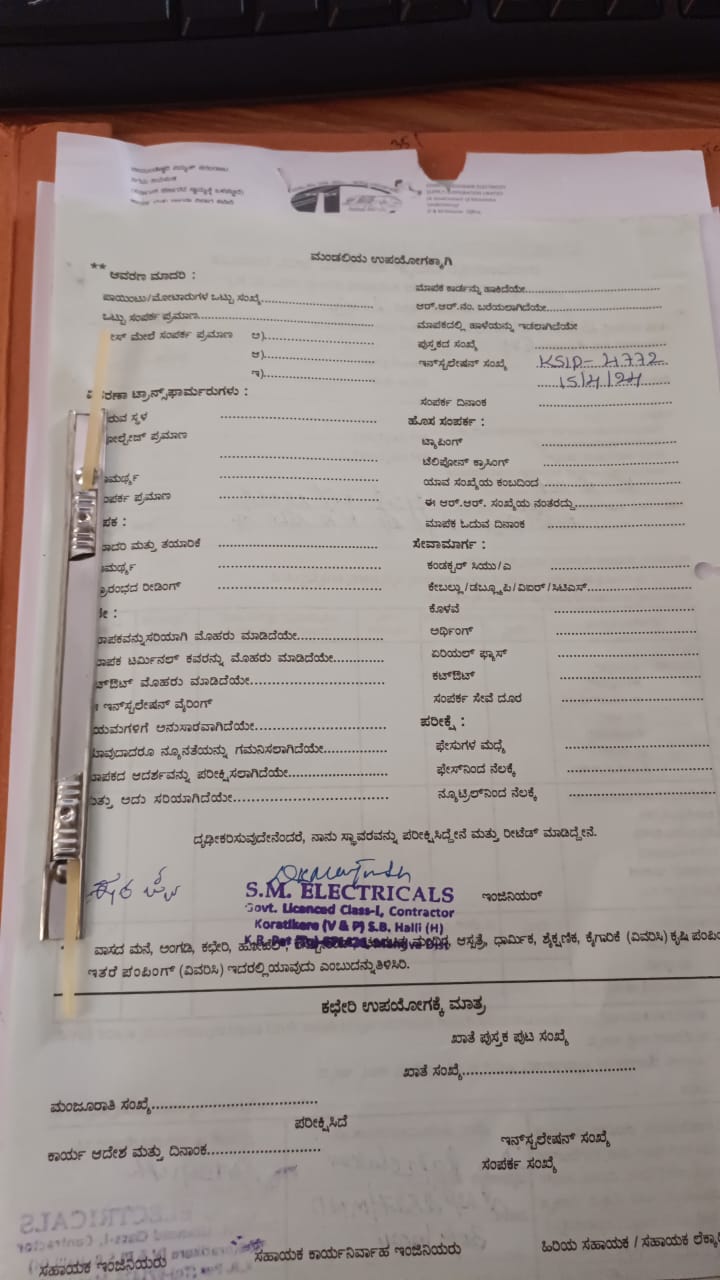 ಮಂಡಲಿಯ ಉಪಯೋಗಕ್ಕಾಗಿ
** ಆವರಣ ಮಾದರಿ :
ಪಾಯಿಂಟು/ಮೋಟಾರುಗಳ ಒಟ್ಟು ಸಂಖ್ಯೆ
ಒಟ್ಟು ಸಂಪರ್ಕ ಪ್ರಮಾಣ
ಮೇಲೆ ಸಂಪರ್ಕ ಪ್ರಮಾಣ ಅ)
ಆ)
ಇ)
ಟ್ರಾನ್ಸ್‌ಫಾರ್ಮರುಗಳು :
ಸ್ಥಳ
ಪ್ರಮಾಣ
ಪ್ರಮಾಣ
ಮತ್ತು ತಯಾರಿಕೆ
ರೀಡಿಂಗ್
ಮೊಹರು ಮಾಡಿದೆಯೇ
ಟರ್ಮಿನಲ್ ಕವರನ್ನು ಮೊಹರು ಮಾಡಿದೆಯೇ
ಮೊಹರು ಮಾಡಿದೆಯೇ
ಇನ್‌ಸ್ಟಲೇಷನ್ ವೈರಿಂಗ್
ಅನುಸಾರವಾಗಿದೆಯೇ
ನ್ಯೂನತೆಯನ್ನು ಗಮನಿಸಲಾಗಿದೆಯೇ
ಆದರ್ಶವನ್ನು ಪರೀಕ್ಷಿಸಲಾಗಿದೆಯೇ
ಅದು ಸರಿಯಾಗಿದೆಯೇ
ಮಾಪಕ ಕಾರ್ಡನ್ನು ಹಾಕಿದೆಯೇ
ಆರ್.ಆರ್.ನಂ. ಬರೆಯಲಾಗಿದೆಯೇ
ಮಾಪಕದಲ್ಲಿ ಹಾಳೆಯನ್ನು ಇಡಲಾಗಿದೆಯೇ
ಪುಸ್ತಕದ ಸಂಖ್ಯೆ
ಇನ್‌ಸ್ಟಲೇಷನ್ ಸಂಖ್ಯೆ KSIP-4772
15/4/24
ಸಂಪರ್ಕ ದಿನಾಂಕ
ಹೊಸ ಸಂಪರ್ಕ :
ಟ್ಯಾಪಿಂಗ್
ಟೆಲಿಫೋನ್ ಕ್ರಾಸಿಂಗ್
ಯಾವ ಸಂಖ್ಯೆಯ ಕಂಬದಿಂದ
ಈ ಆರ್.ಆರ್. ಸಂಖ್ಯೆಯ ನಂತರದ್ದು
ಮಾಪಕ ಓದುವ ದಿನಾಂಕ
ಸೇವಾಮಾರ್ಗ :
ಕಂಡಕ್ಟರ್ ಸಿಯು/ಎ
ಕೇಬಲ್ಲು/ಡಬ್ಲ್ಯೂಪಿ/ವಿಐಆರ್/ಸಿಟಿಎಸ್
ಕೊಳವೆ
ಅರ್ಥಿಂಗ್
ಏರಿಯಲ್ ಫ್ಯೂಸ್
ಕಟ್‌ಔಟ್
ಸಂಪರ್ಕ ಸೇವೆ ದೂರ
ಪರೀಕ್ಷೆ :
ಫೇಸುಗಳ ಮಧ್ಯೆ
ಫೇಸ್‌ನಿಂದ ನೆಲಕ್ಕೆ
ನ್ಯೂಟ್ರಲ್‌ನಿಂದ ನೆಲಕ್ಕೆ
ದೃಢೀಕರಿಸುವುದೇನೆಂದರೆ, ನಾನು ಸ್ಥಾವರವನ್ನು ಪರೀಕ್ಷಿಸಿದ್ದೇನೆ ಮತ್ತು ರೀಟೆಡ್ ಮಾಡಿದ್ದೇನೆ.
S.M. ELECTRICALS ಇಂಜಿನಿಯರ್
Govt. Licenced Class-I, Contractor
Koratikere (V & P) S.B. Halli (H)
ವಾಸದ ಮನೆ, ಅಂಗಡಿ, ಕಛೇರಿ, ಆಸ್ಪತ್ರೆ, ಧಾರ್ಮಿಕ, ಶೈಕ್ಷಣಿಕ, ಕೈಗಾರಿಕೆ (ವಿವರಿಸಿ) ಕೃಷಿ
ಇತರೆ ಪಂಪಿಂಗ್ (ವಿವರಿಸಿ) ಇದರಲ್ಲಿ ಯಾವುದು ಎಂಬುದನ್ನು ತಿಳಿಸಿರಿ.
ಕಛೇರಿ ಉಪಯೋಗಕ್ಕೆ ಮಾತ್ರ
ಖಾತೆ ಪುಸ್ತಕ ಪುಟ ಸಂಖ್ಯೆ
ಖಾತೆ ಸಂಖ್ಯೆ
ಮಂಜೂರಾತಿ ಸಂಖ್ಯೆ
ಪರೀಕ್ಷಿಸಿದೆ
ಕಾರ್ಯ ಆದೇಶ ಮತ್ತು ದಿನಾಂಕ
ಇನ್‌ಸ್ಟಲೇಷನ್ ಸಂಖ್ಯೆ
ಸಂಪರ್ಕ ಸಂಖ್ಯೆ
ಸಹಾಯಕ ಇಂಜಿನಿಯರು ಸಹಾಯಕ ಕಾರ್ಯನಿರ್ವಾಹ ಇಂಜಿನಿಯರು ಹಿರಿಯ ಸಹಾಯಕ / ಸಹಾಯಕ